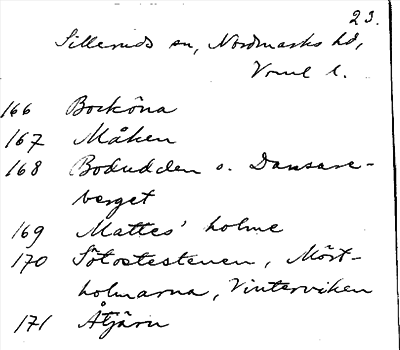 23.
Silleruds sn, Nordmarks hd,
Vrml l.
166 Bocköna
167 Måken
168 Bodudden o. Dansare-
berget
169 Mattes' holme
170 Sötostestenen, Mört-
holmarna, Vinterviken
171 Åtjärn